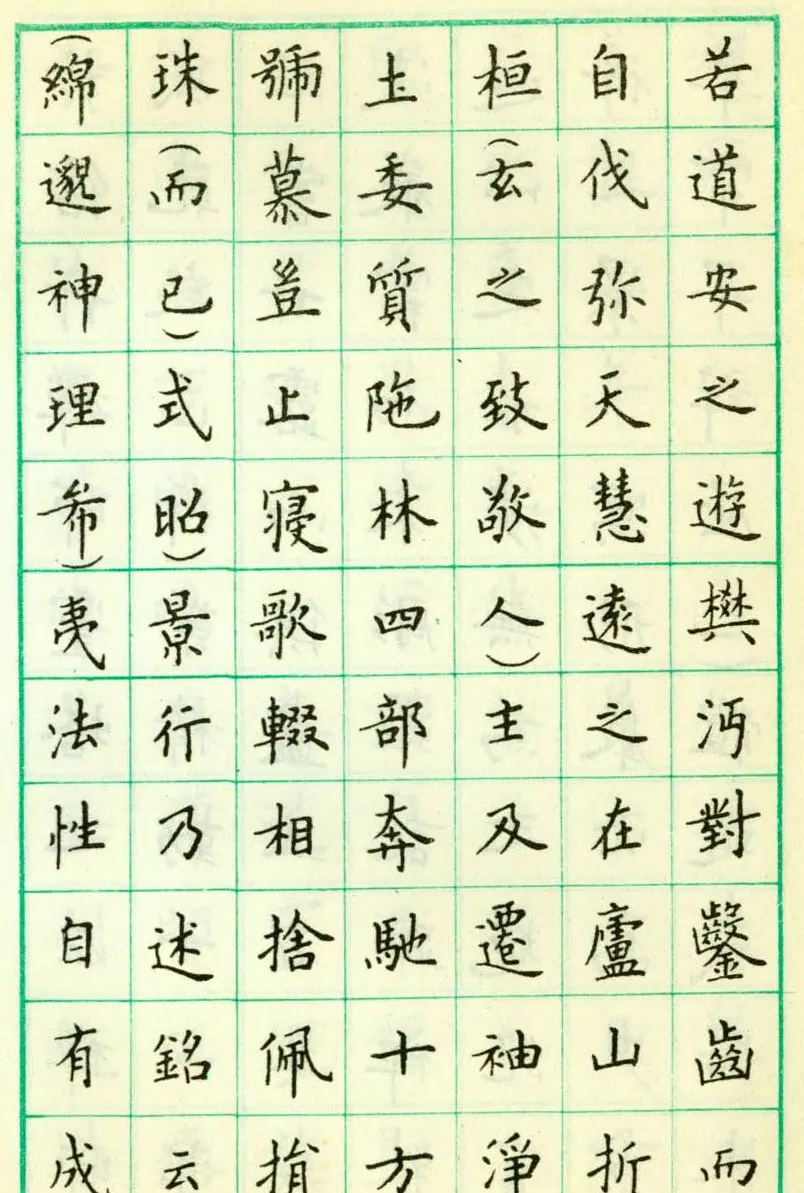 若道安之遊樊沔對鑿齒而
自伐弥天慧遠之在廬山折
桓（玄之致敬人）主及遷袖淨
土委質陁林四部奔馳十方
號慕豈止寝歌輟相捨佩捐
珠（而已）式昭）景行乃述銘云
（綿邈神理希）夷法性自有成